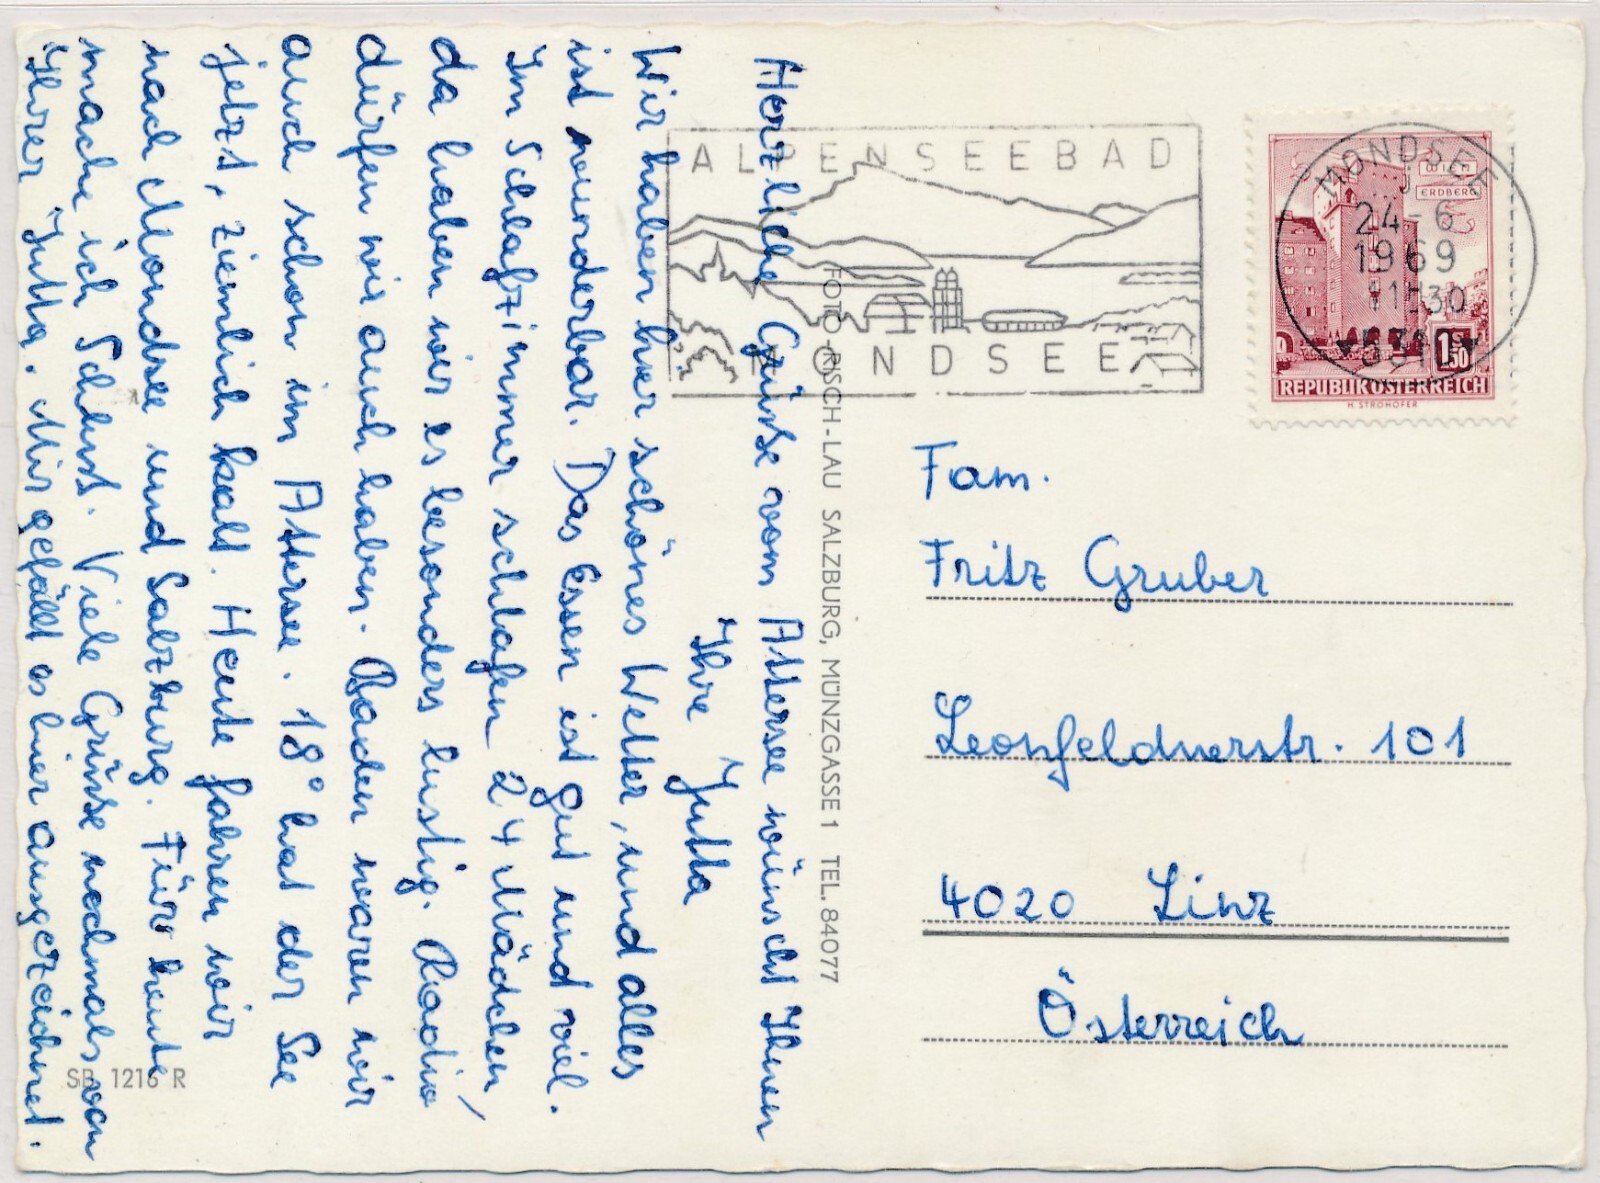 Herzliche Grüße vom Attersee wünscht Ihnen
Ihre Jutta
Wir haben hier schönes Wetter, und alles
ist wunderbar. Das Essen ist gut und viel.
Im Schlafzimmer schlafen 24 Mädchen,
da haben wir es besonders lustig. Radio
dürfen wir auch haben. Baden waren wir
auch schon im Attersee. 18° hat der See
jetzt, ziemlich kalt. Heute fahren wir
nach Mondsee und Salzburg. Für heute
mache ich Schluß. Viele Grüße nochmals von
Ihrer Jutta. Mir gefällt es hier ausgezeichnet.
SB 1216 R
FOTO-RISCH-LAU SALZBURG, MÜNZGASSE 1 TEL. 84077
ALPENSEEBAD
MONDSEE
MONDSEE
24-6
1969
11-30
5310
WIEN
ERDBERG
1 S 50
REPUBLIK ÖSTERREICH
H. STROHOFER
Fam.
Fritz Gruber
Leonfeldnerstr. 101
4020 Linz
Österreich